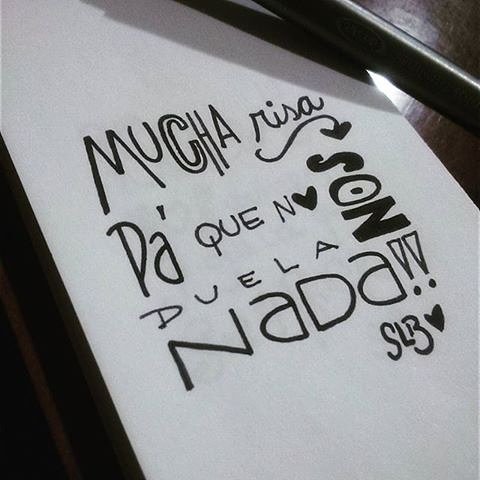 MUCHA risa
SON
Pá QUE N♥
DUELA
NADA!!
SLB♥